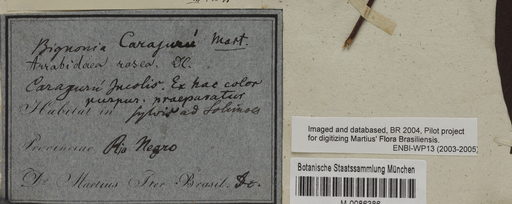 Bignonia Carajurú Mart.
Arrabidaea rosea. DC.
Carajurú Incolis. Ex hac color
purpur. praeparatur
Habitat in sylvis ad
Provinciae Rio Negro
Dr. Martius Iter Brasil. &c.
Imaged and databased, BR 2004, Pilot project
for digitizing Martius' Flora Brasiliensis.
ENBI-WP13 (2003-2005)
Botanische Staatssammlung München
M-0086386